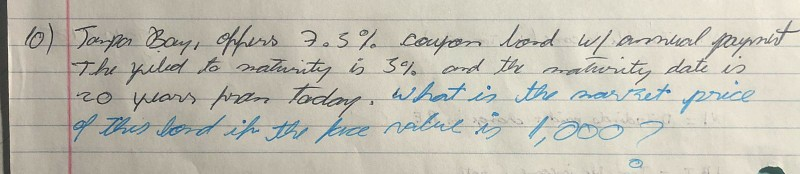 10) Tampa Bay, offers 7.5% coupon bond w/ annual payment
The yeiled to maturity is 5% and the maturity date is
20 years from today. What is the market price
of this bond if the face value is 1,000?